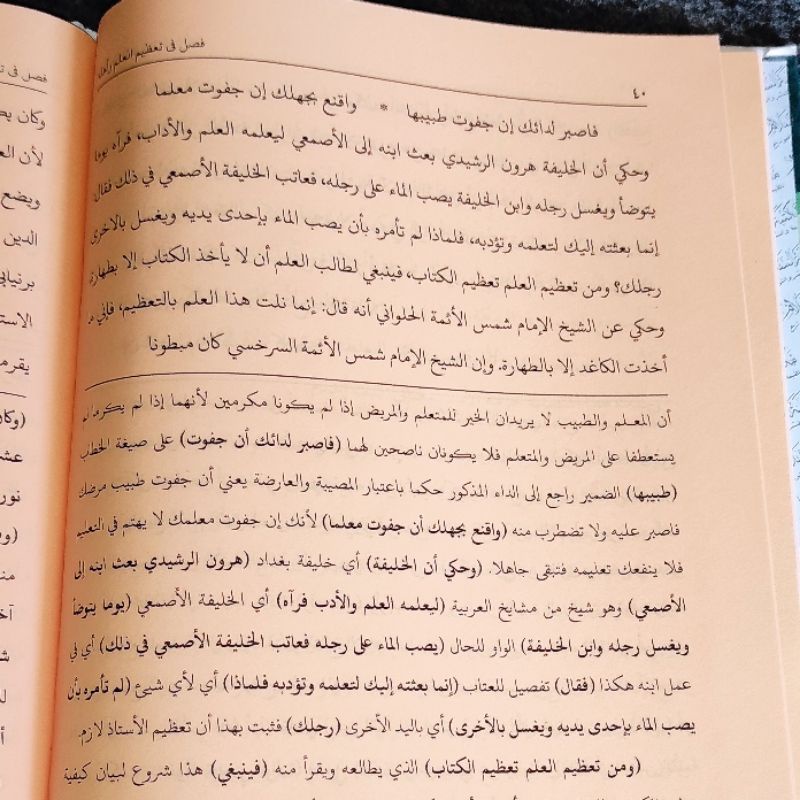 ٤٠
فصل في تعظيم العلم وأهله
فاصبر لدائك إن جفوت طبيبها * واقنع بجهلك إن جفوت معلما
وحكي أن الخليفة هرون الرشيدي بعث ابنه إلى الأصمعي ليعلمه العلم والأداب، فرآه يوما
يتوضأ ويغسل رجله وابن الخليفة يصب الماء على رجله، فعاتب الخليفة الأصمعي في ذلك فقال:
إنما بعثته إليك لتعلمه وتؤدبه، فلماذا لم تأمره بأن يصب الماء بإحدى يديه ويغسل بالاخرى
رجلك؟ ومن تعظيم العلم تعظيم الكتاب، فينبغي لطالب العلم أن لا يأخذ الكتاب إلا بطهارة.
وحكي عن الشيخ الإمام شمس الأئمة الحلواني أنه قال: إنما نلت هذا العلم بالتعظيم، فإني ما
أخذت الكاغد إلا بالطهارة. وإن الشيخ الإمام شمس الأئمة السرخسي كان مبطونا
أن المعلم والطبيب لا يريدان الخير للمتعلم والمريض إذا لم يكونا مكرمين لأنهما إذا لم يكرما لم
يستعطفا على المريض والمتعلم فلا يكونان ناصحين لهما (فاصبر لدائك أن جفوت) على صيغة الخطاب
(طبيبها) الضمير راجع إلى الداء المذكور حكما باعتبار المصيبة والعارضة يعني أن جفوت طبيب مرضك
فاصبر عليه ولا تضطرب منه (واقنع بجهلك أن جفوت معلما) لأنك إن جفوت معلمك لا يهتم في التعليم
فلا ينفعك تعليمه فتبقى جاهلا. (وحكي أن الخليفة) أي خليفة بغداد (هرون الرشيدي بعث ابنه إلى
الأصمعي) وهو شيخ من مشايخ العربية (ليعلمه العلم والأدب فرآه) أي الخليفة الأصمعي (يوما يتوضأ
ويغسل رجله وابن الخليفة) الواو للحال (يصب الماء على رجله فعاتب الخليفة الأصمعي في ذلك) أي في
عمل ابنه هكذا (فقال) تفصيل للعتاب (إنما بعثته إليك لتعلمه وتؤدبه فلماذا) أي لأي شيئ (لم تأمره بأن
يصب الماء بإحدى يديه ويغسل بالأخرى) أي باليد الأخرى (رجلك) فثبت بهذا أن تعظيم الأستاذ لازم.
(ومن تعظيم العلم تعظيم الكتاب) الذي يطالعه ويقرأ منه (فينبغي) هذا شروع لبيان كيفية
فصل في
وكان
لأن
ويضع
الدين